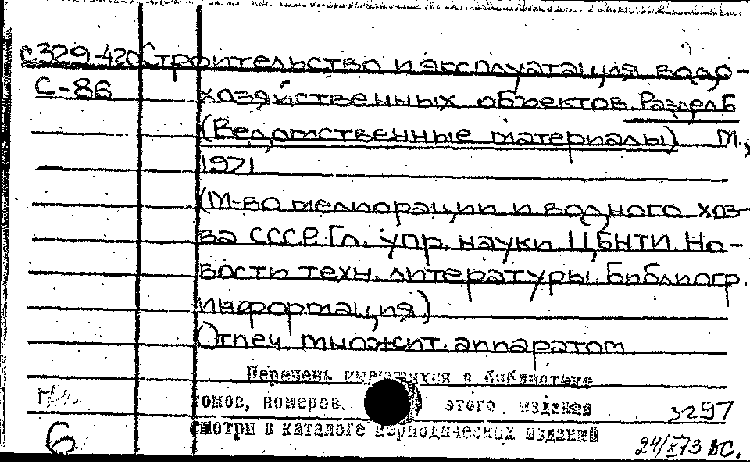 С329-420 Строительство и эксплуатация водо-
С-86 хозяйственных объектов. Раздел Б
(Ведомственные материалы). М.,
1971
(М-во мелиорации и водного хоз-
ва СССР. Гл. упр. науки. ЦБНТИ. Но-
вости техн. литературы. Библиогр.
информация)
Отпеч. множит. аппаратом
Перечень имеющихся в библиотеке
томов, номеров этого издания 3297
смотри в каталоге периодических изданий
6 24/X 73 ВС.